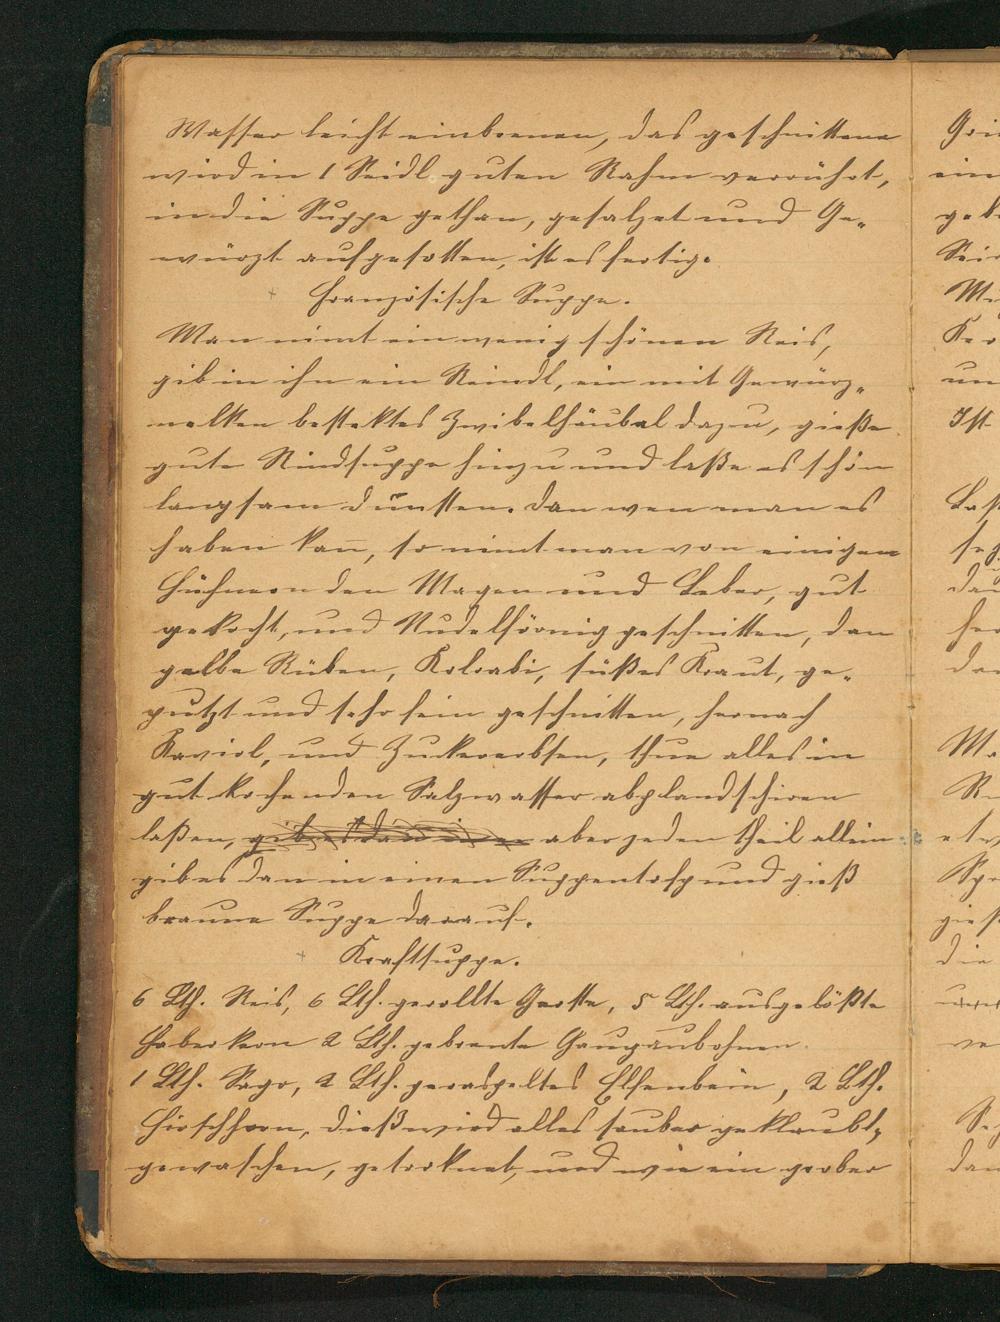 Wasser leicht einbrenen, das geschnittene
wird in 1 Seidl guten Rahm verrührt,
in die Suppe gethan, gesalzet und Ge„
würzt aufgesotten, ist es fertig.
+ Französische Suppe.
Man nimt ein wenig schönen Reis,
gib in ihn ein Reindl, ein mit Gewürz„
nelken bestektes Zwibelhäubel dazu, gieße
gute Rindsuppe hinzu und laße es schön
langsam dünsten. Dan wen man es
haben kan̅, so nimt man von einigen
Hühnern den Magen und Leber, gut
gekocht, und Nudelförmig geschnitten, dan
gelbe Rüben, Kolrabi, süßes Kraut, ge„
putzt und sehr fein geschnitten, hernach
Kaviol, und Zukererbsen, thue alles in
gut kochenden Salzwasser abplandschiren
laßen, aber jeden theil allein
gib es dan in einen Suppentopf und gieß
braune Suppe darauf.
+ Kraftsuppe.
6 Lth. Reis, 6 Lth. gerollte Gerste, 5 Lth. ausgelößte
Haberkern 2 Lth. gebrente
1 Lth. Sago, 2 Lth. geraspeltes Elfenbein, 2 Lth.
Hirschhorn, dieß wird alles sauber geklaubt,
gewaschen, getroknet, und wie ein grober